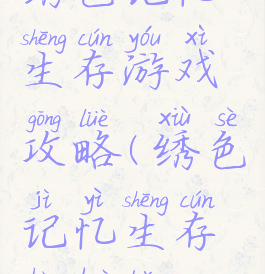 shēng cún yóu xì
生存游戏
gōng lüè xiù sè
攻略(绣色
jì yì shēng cún
记忆生存